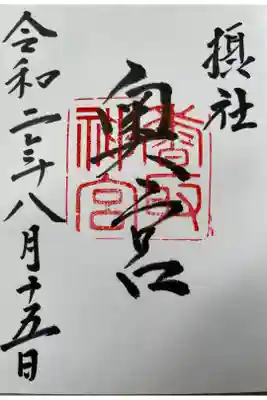 摂社
奥宮
香取
神宮
令和二年八月十五日